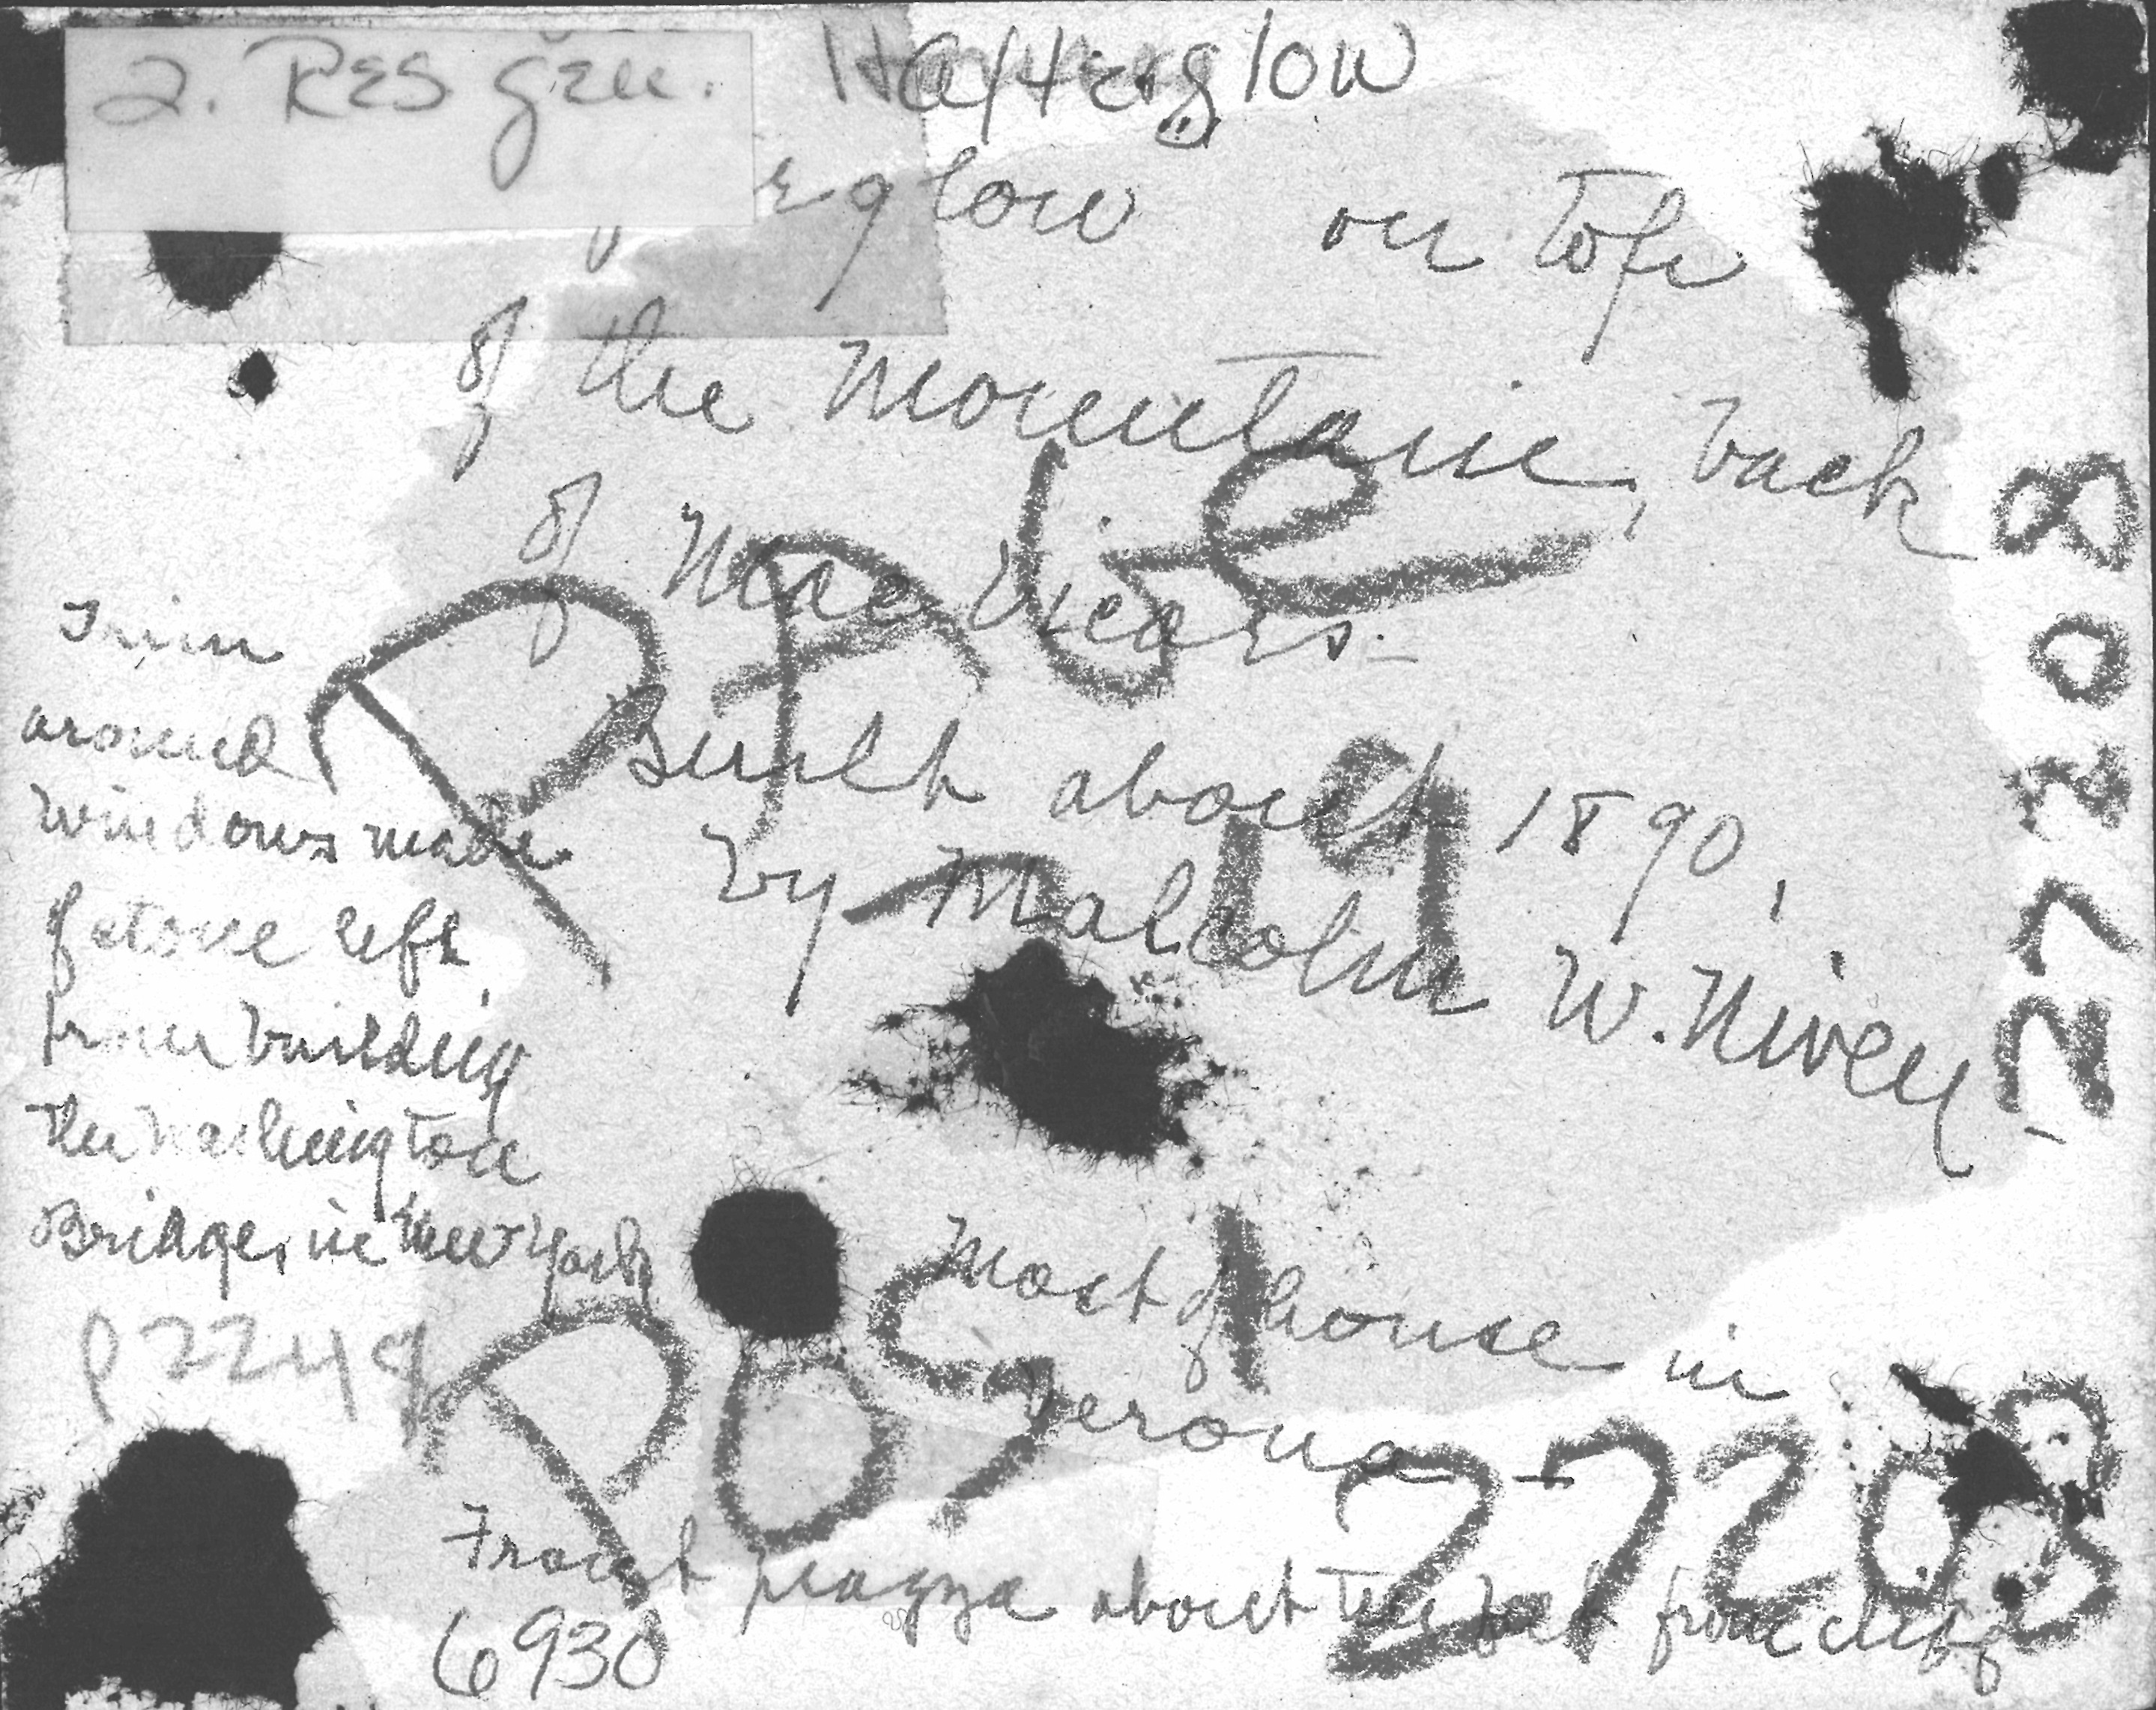 2. Res gen.
Afterglow
erglow on top
of the mountain, back
of MacVicars -
Built about 1890,
by Malcolm W. Niven
Trim
around
windows made
of stone left
from building
the Washington
Bridge, in New York
P2249
Most of house in
Verona -
Front piazza about ten feet from cliff
6930
27208
27208